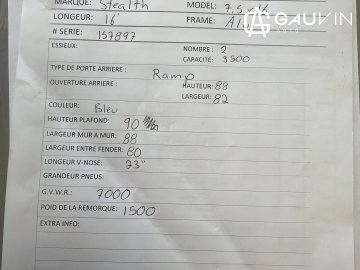 GAUVIN
AUTO
MARQUE: Stealth MODEL: 7,5
LONGEUR: 16' FRAME: Alu
# SERIE: 157897
ESSIEUX: NOMBRE: 2
CAPACITÉ: 3500
TYPE DE PORTE ARRIERE: Ramp
OUVERTURE ARRIERE: HAUTEUR: 88
LARGEUR: 82
COULEUR: Bleu
HAUTEUR PLAFOND: 90
LARGEUR MUR A MUR: 88
LARGEUR ENTRE FENDER: 80
LONGUEUR V-NOSE: 23"
GRANDEUR PNEUS:
G.V.W.R.: 7000
POID DE LA REMORQUE: 1500
EXTRA INFO: